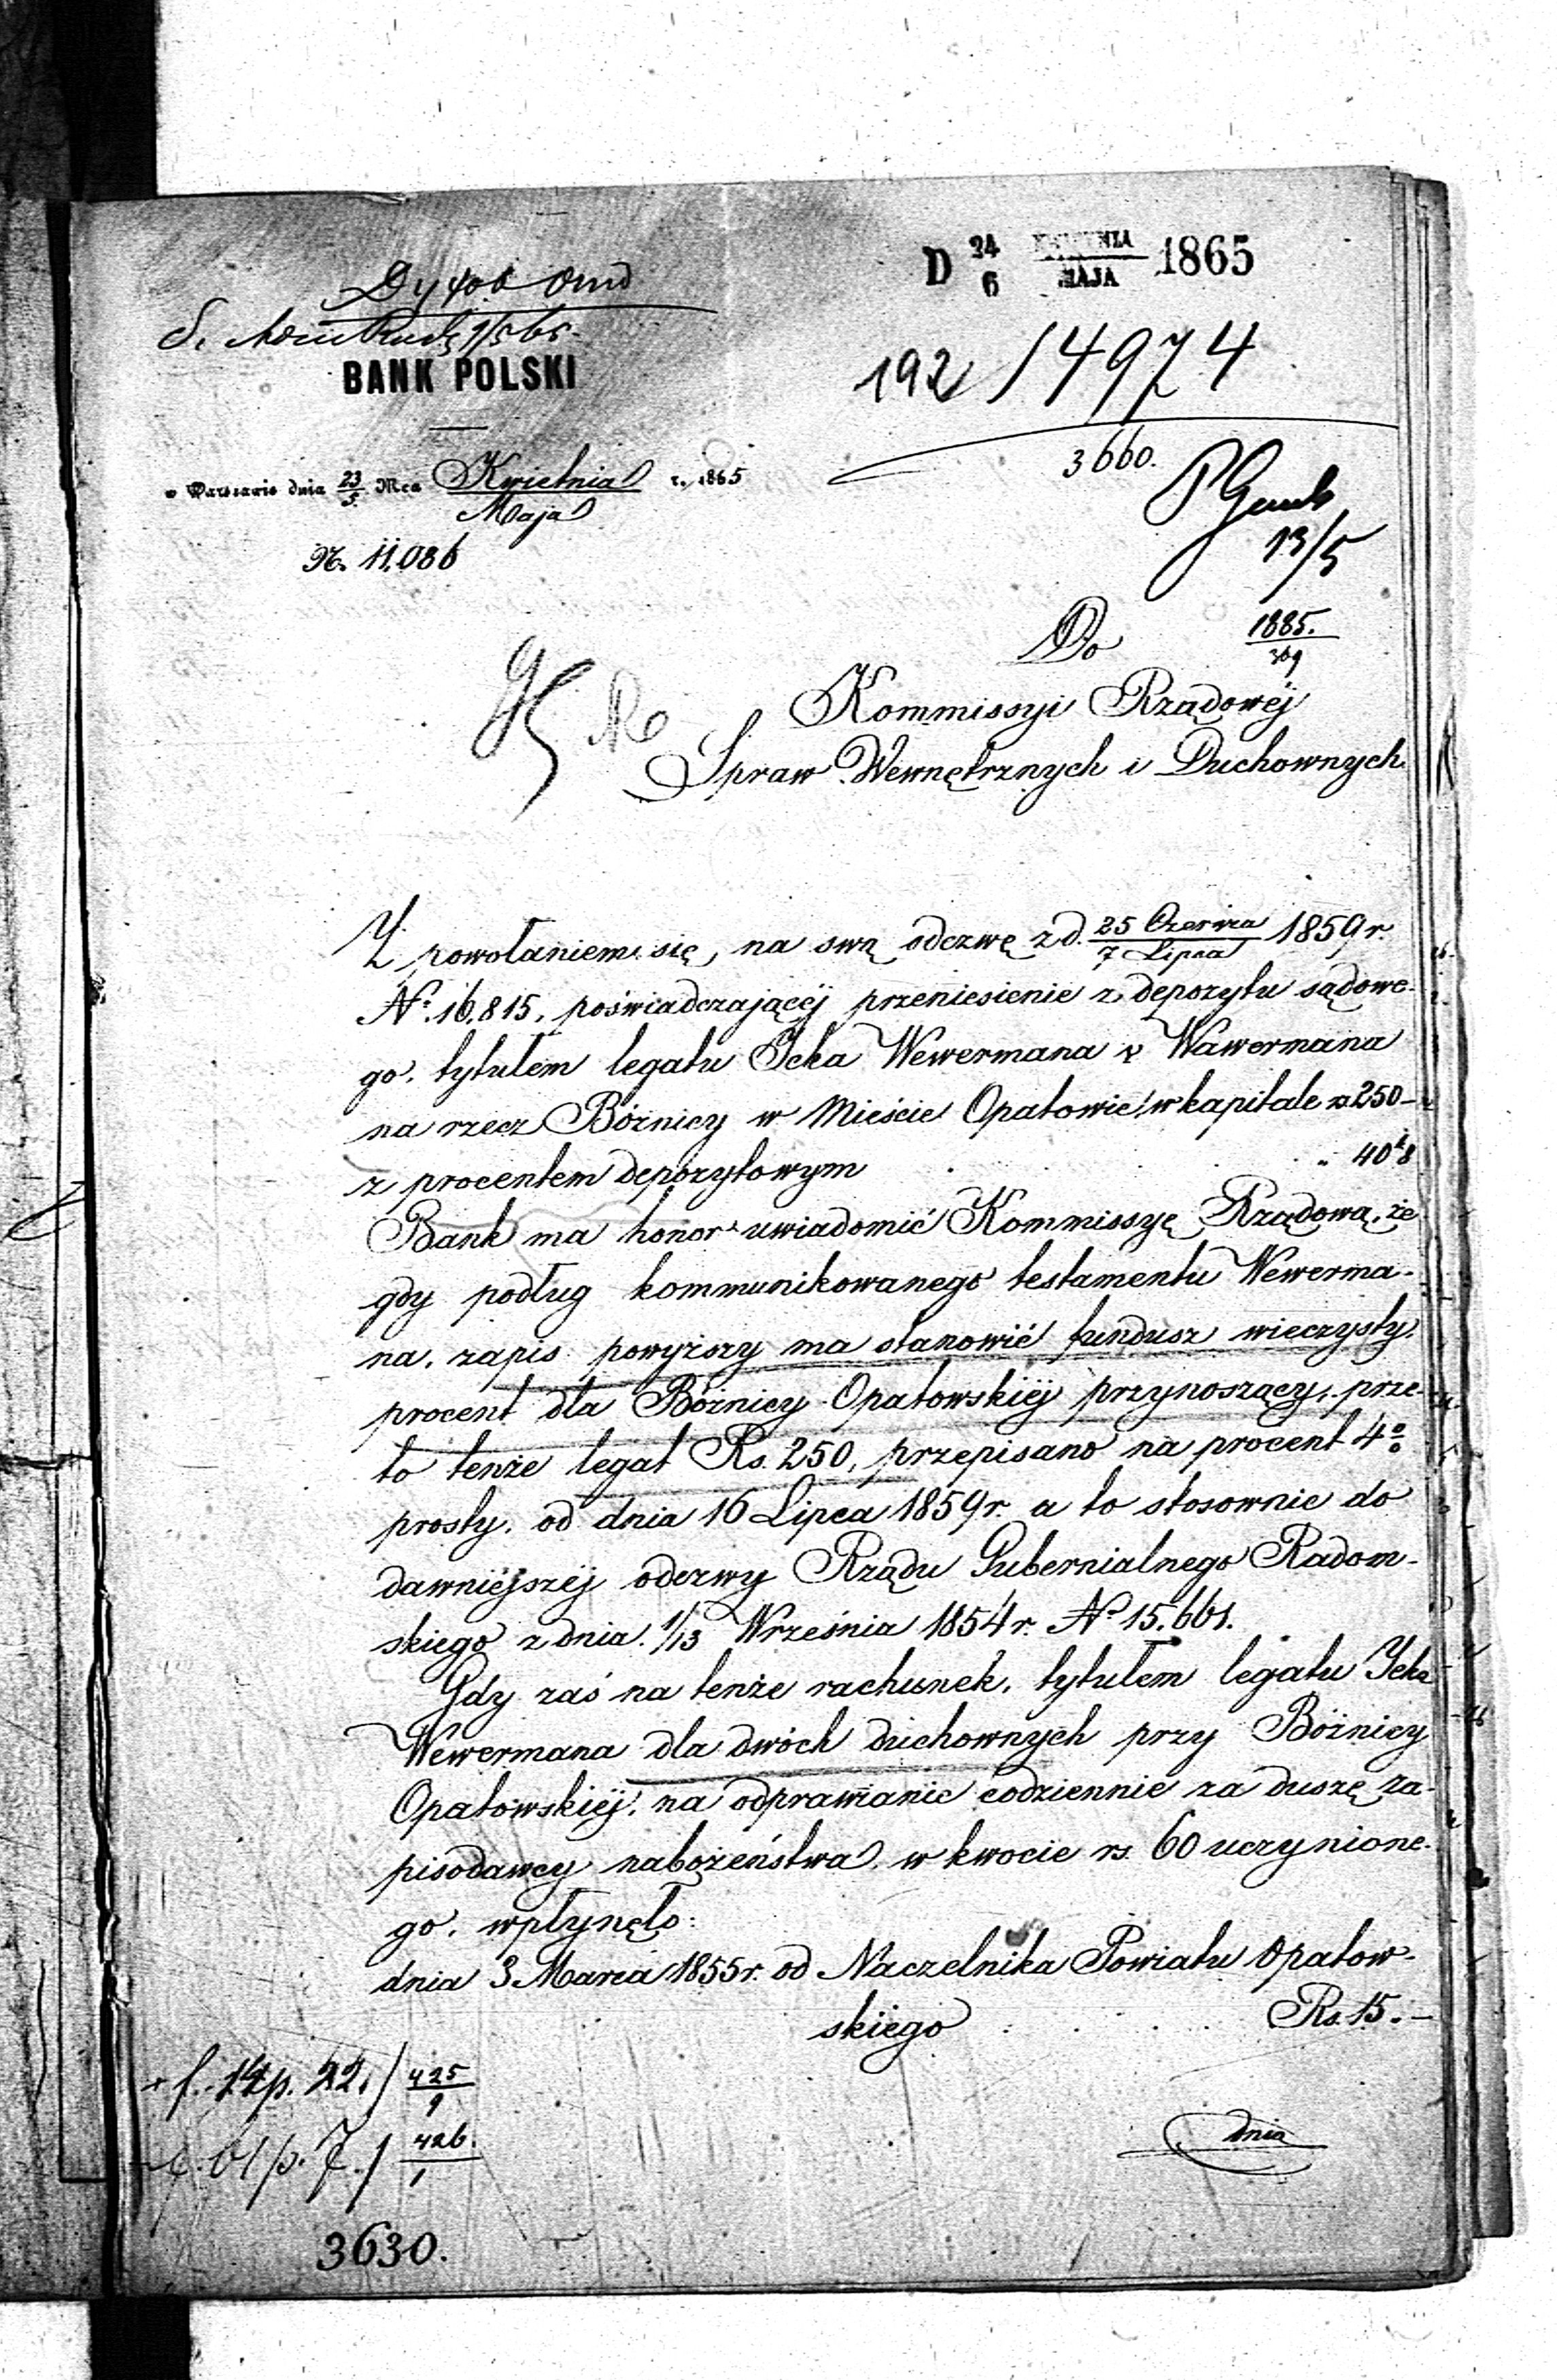 D 24/6 KWIETNIA/MAJA 1865
BANK POLSKI
192/14974
3660.
w Warszawie dnia 23/5 Mca Kwietnia/Maja r. 1865
13/5
N. 11.086
Do
1885./369
Kommissyi Rządowéj
Spraw Wewnętrznych i Duchownych
Z powołaniem się, na swą odezwę z d. 25 Czerwca/7 Lipca 1859 r.
No. 16.815, poświadczającéj przeniesienie z depozytu sądowe-
go, tytułem legatu Icka Wewermana v Wawermana
na rzecz Bóżnicy w Mieście Opatowie w kapitale rs 250 -
z procentem depozytowym . . . „ 40
Bank ma honor uwiadomić Kommissyę Rządową, że
gdy podług kommunikowanego testamentu Wewerma-
na, zapis powyższy ma stanowić fundusz wieczysty,
procent dla Bóżnicy Opatowskiéj przynoszący, prze-
to tenże legat Rs. 250, przepisano na procent 4%
prosty, od dnia 16 Lipca 1859 r. a to stosownie do
dawniejszéj odezwy Rządu Gubernialnego Radom-
skiego z dnia 1/13 Września 1854 r. No 15.661.
Gdy zaś na tenże rachunek, tytułem legatu Icka
Wewermana dla dwóch duchownych przy Bóżnicy
Opatowskiéj, na odprawianie codziennie za duszę za-
pisodawcy nabożeństwa, w kwocie rs. 60 uczynione-
go, wpłynęło:
dnia 3 Marca 1855 r. od Naczelnika Powiatu Opatow-
skiego . . . Rs. 15. -
425/9
426./1
dnia
3630.